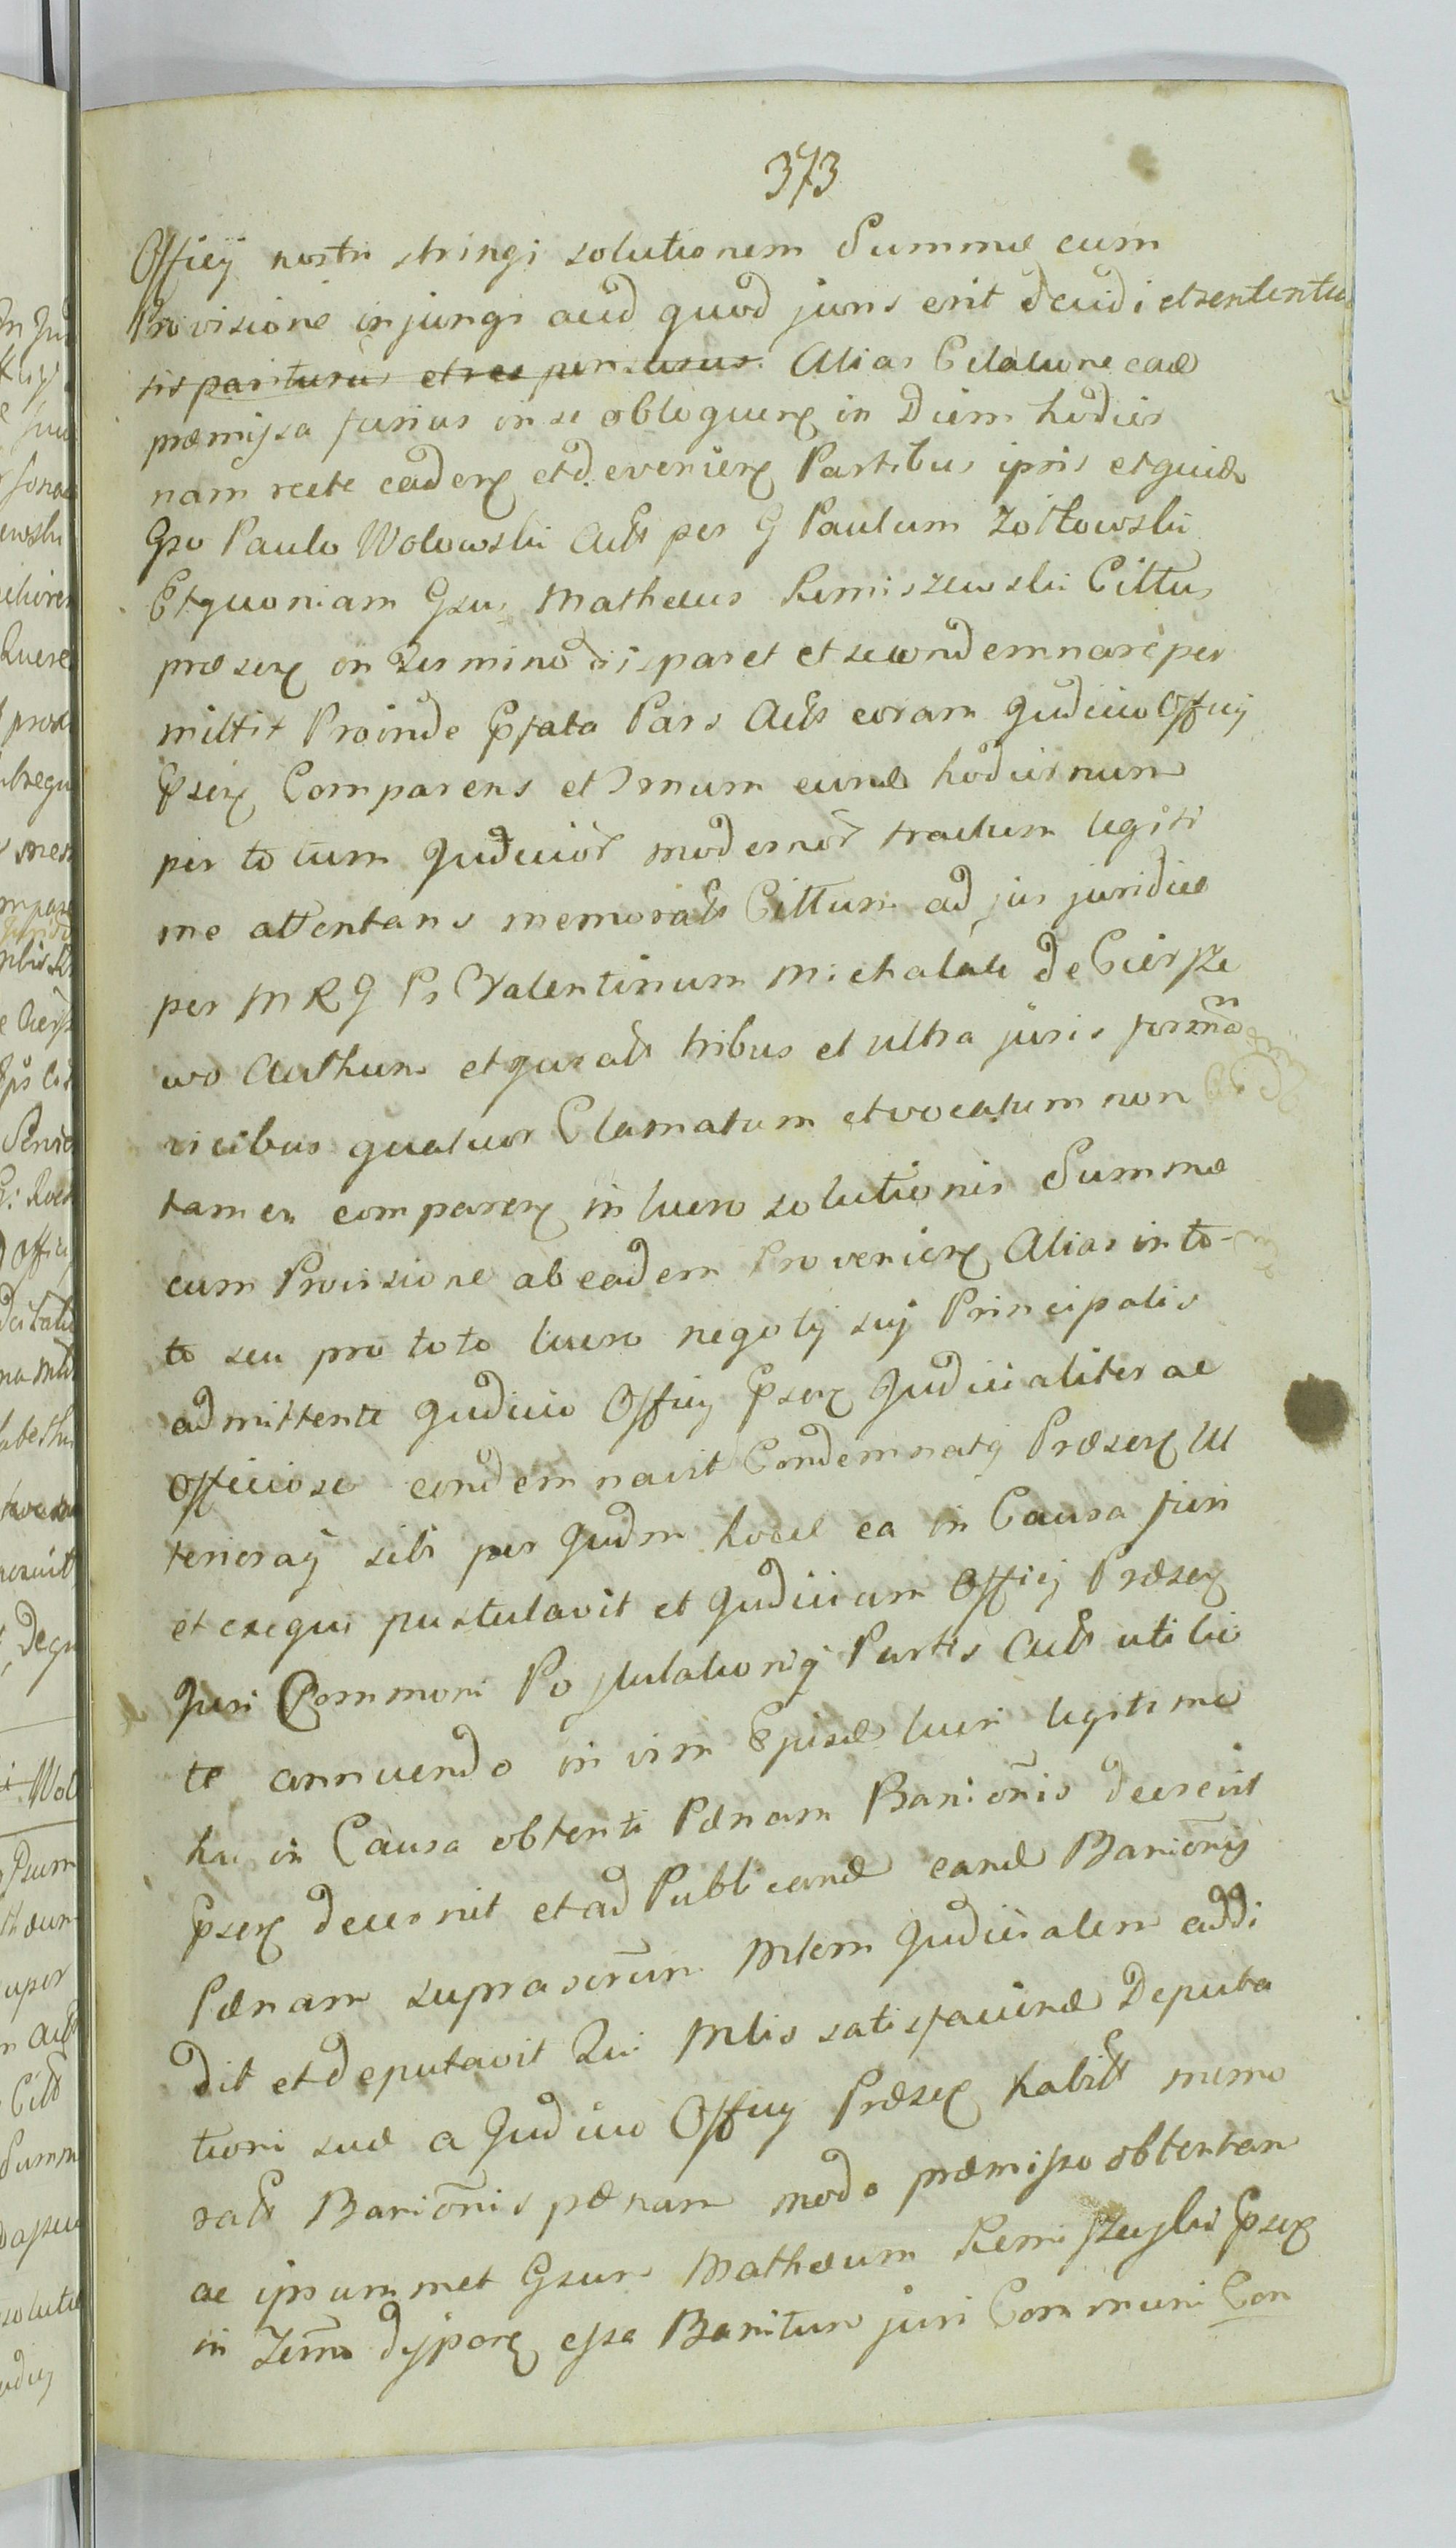 373
Officÿ nostri stringi solutionem Summæ cum
Provisione injungi aud quod juris erit decidi et sententia
sis pariturus et res pensurus. Alias Citatione ead
præmissa furius in se obloquen in Diem hodier
nam recte caden et devenien Partibus ipsis et quid
Gso Paulo Wolowski Actt per G Paulum Zołtowski
Et quoniam Gsus Matheus Remiszewski Cittus
præsen in Termino disparet et se condemnare per
mittit Proinde Pfata Pars Actt coram Judicio Officÿ
Psen Comparens et Tmum eund hodiernum
per totum Judicior modernor tractum legiti
me attentans memoratt Cittum ad jus juridice
per M R G Ps Valentinum Michalak de Cierpie
wo Authum et juratt tribus et ultra juris forma
vicibus quatuor Clamatum et vocatum non
tamen comparen in lucro solutionis Summæ
cum Provisione ab eadem Provenien Alias in to-
to seu pro toto lucro negotÿ suÿ Principalis
admittente Judicio Officÿ Psen Judicialiter ac
officiose condemnavit Condemnatq Præsen lu
terioraq sibi per Judm hocce ea in Causa fieri
et exequi pustulavit et Judicium Officÿ Præsen
Juri Communi Postulationiq Partis Actt uti lici
te annuendo in vim Epised lucri legitime
hac in Causa obtenti Pænam Banionis decrevit
Psen decernit et ad Publicand eand Banioniq
Pænam suprascrum Mlem Judicialem addi
dit et deputavit Qui Mlis satisfaciend Deputa
tioni suæ a Judicio Officÿ Præsen habitt memo
ratt Banionis pænam modo præmisso obtentam
ac ipsummet Gsum Mathæum Remiszewski Psen
in Termo dyparen esse Banitum juri Communi Con